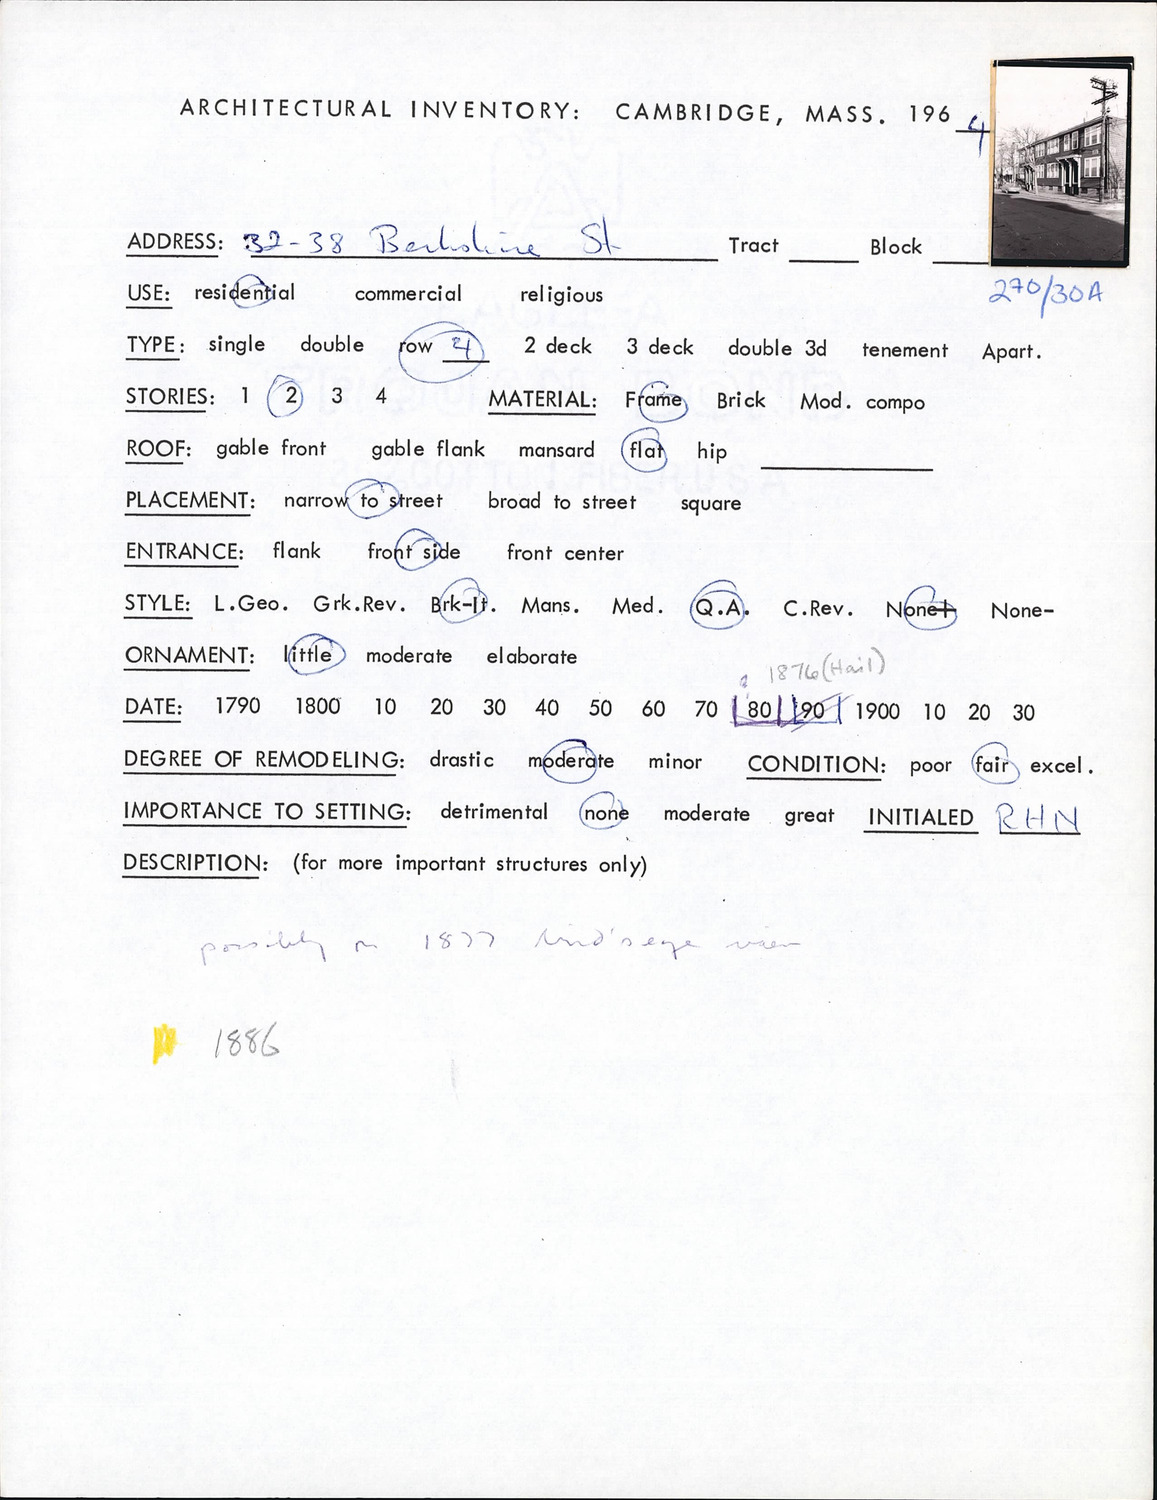 ARCHITECTURAL INVENTORY: CAMBRIDGE, MASS. 1964
ADDRESS: 32-38 Berkshire St Tract Block
270/30A
USE: residential commercial religious
TYPE: single double row 4 2 deck 3 deck double 3d tenement Apart.
STORIES: 1 2 3 4 MATERIAL: Frame Brick Mod. compo
ROOF: gable front gable flank mansard flat hip
PLACEMENT: narrow to street broad to street square
ENTRANCE: flank front side front center
STYLE: L.Geo. Grk.Rev. Brk-It. Mans. Med. Q.A. C.Rev. None+ None-
ORNAMENT: little moderate elaborate
? 1876 (Hail)
DATE: 1790 1800 10 20 30 40 50 60 70 80 90 1900 10 20 30
DEGREE OF REMODELING: drastic moderate minor CONDITION: poor fair excel.
IMPORTANCE TO SETTING: detrimental none moderate great INITIALED RHN
DESCRIPTION: (for more important structures only)
possibly on 1877 bird's eye view
1886